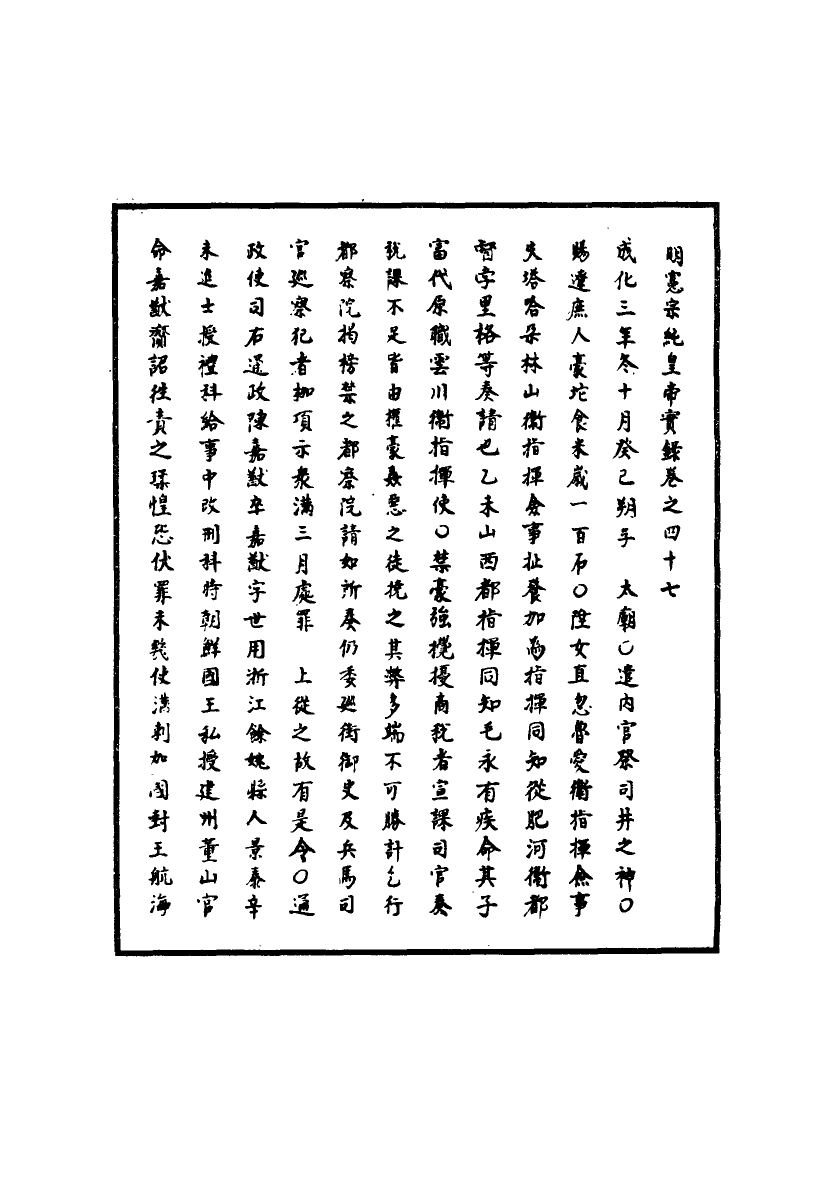 明憲宗純皇帝實錄卷之四十七
成化三年冬十月癸巳朔享　太廟○遣內官祭司井之神○
賜遼庶人豪㘶食米歲一百石○陞女直忽魯愛衛指揮僉事
失塔哈朵林山衛指揮僉事扯養加為指揮同知從肥河衛都
督孛里格等奏請也乙未山西都指揮同知毛永有疾命其子
富代原職雲川衛指揮使○禁豪強攪擾商稅者宣課司官奏
稅課不足皆由權豪姦惡之徒撓之其弊多端不可勝計乞行
都察院揭榜禁之都察院請如所奏仍委廵街御史及兵馬司
官廵察犯者枷項示衆滿三月處罪　上從之故有是令○通
政使司右通政陳嘉猷卒嘉猷字世用浙江餘姚縣人景泰辛
未進士授禮科給事中改刑科時朝鮮國王私授建州董山官
命嘉猷齎詔往責之瑈惶恐伏罪未幾使滿剌加國封王航海